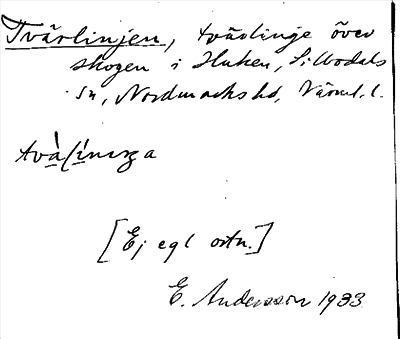 Tvärlinjen, tvärlinje över
skogen i Huken, Sillbodals
sn, Nordmarks hd, Värml. l.
[Ej egl ortn.]
E. Andersson 1933